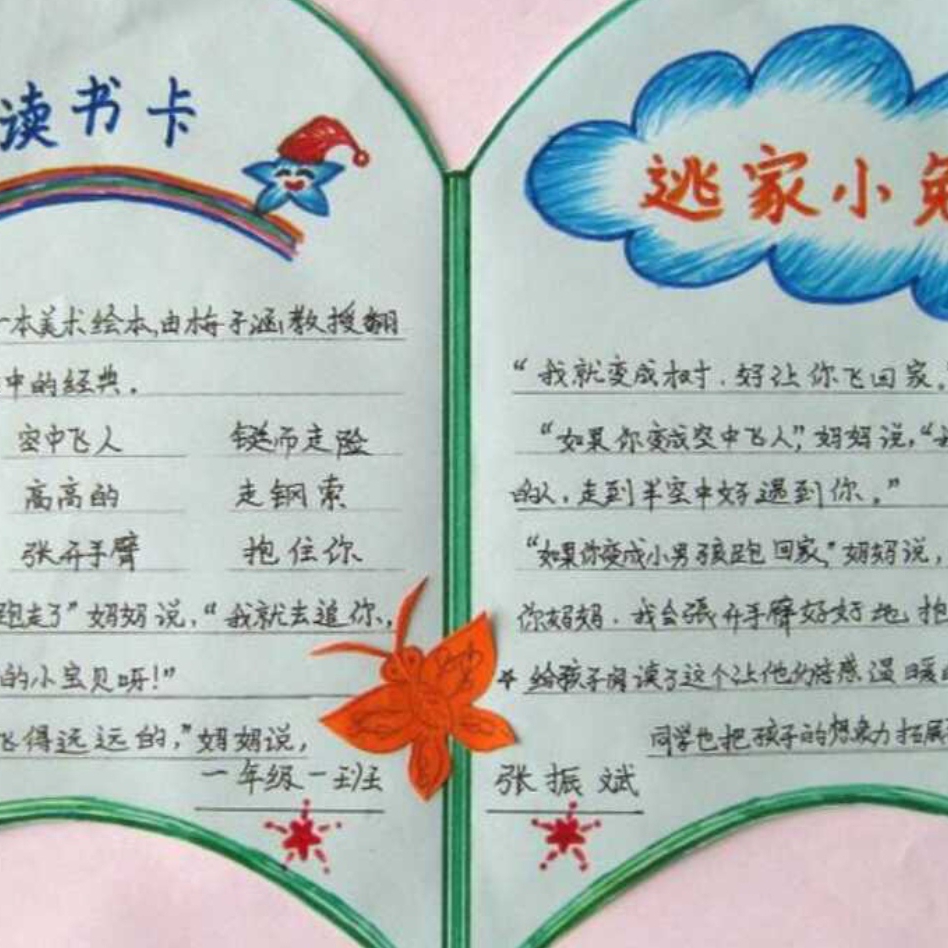 读书卡
一本美术绘本,由梅子涵教授翻
中的经典.
空中飞人 铤而走险
高高的 走钢索
张开手臂 抱住你
跑走了”妈妈说,“我就去追你,
的小宝贝呀!”
飞得远远的,”妈妈说,
一年级一班
逃家小兔
“我就变成树.好让你飞回家.”
“如果你变成空中飞人”,妈妈说,“
的人.走到半空中好遇到你.”
“如果你变成小男孩跑回家”妈妈说,
你妈妈.我会张开手臂好好地抱
给孩子阅读了这个让他们倍感温暖的
同学也把孩子的想象力拓展
张振斌